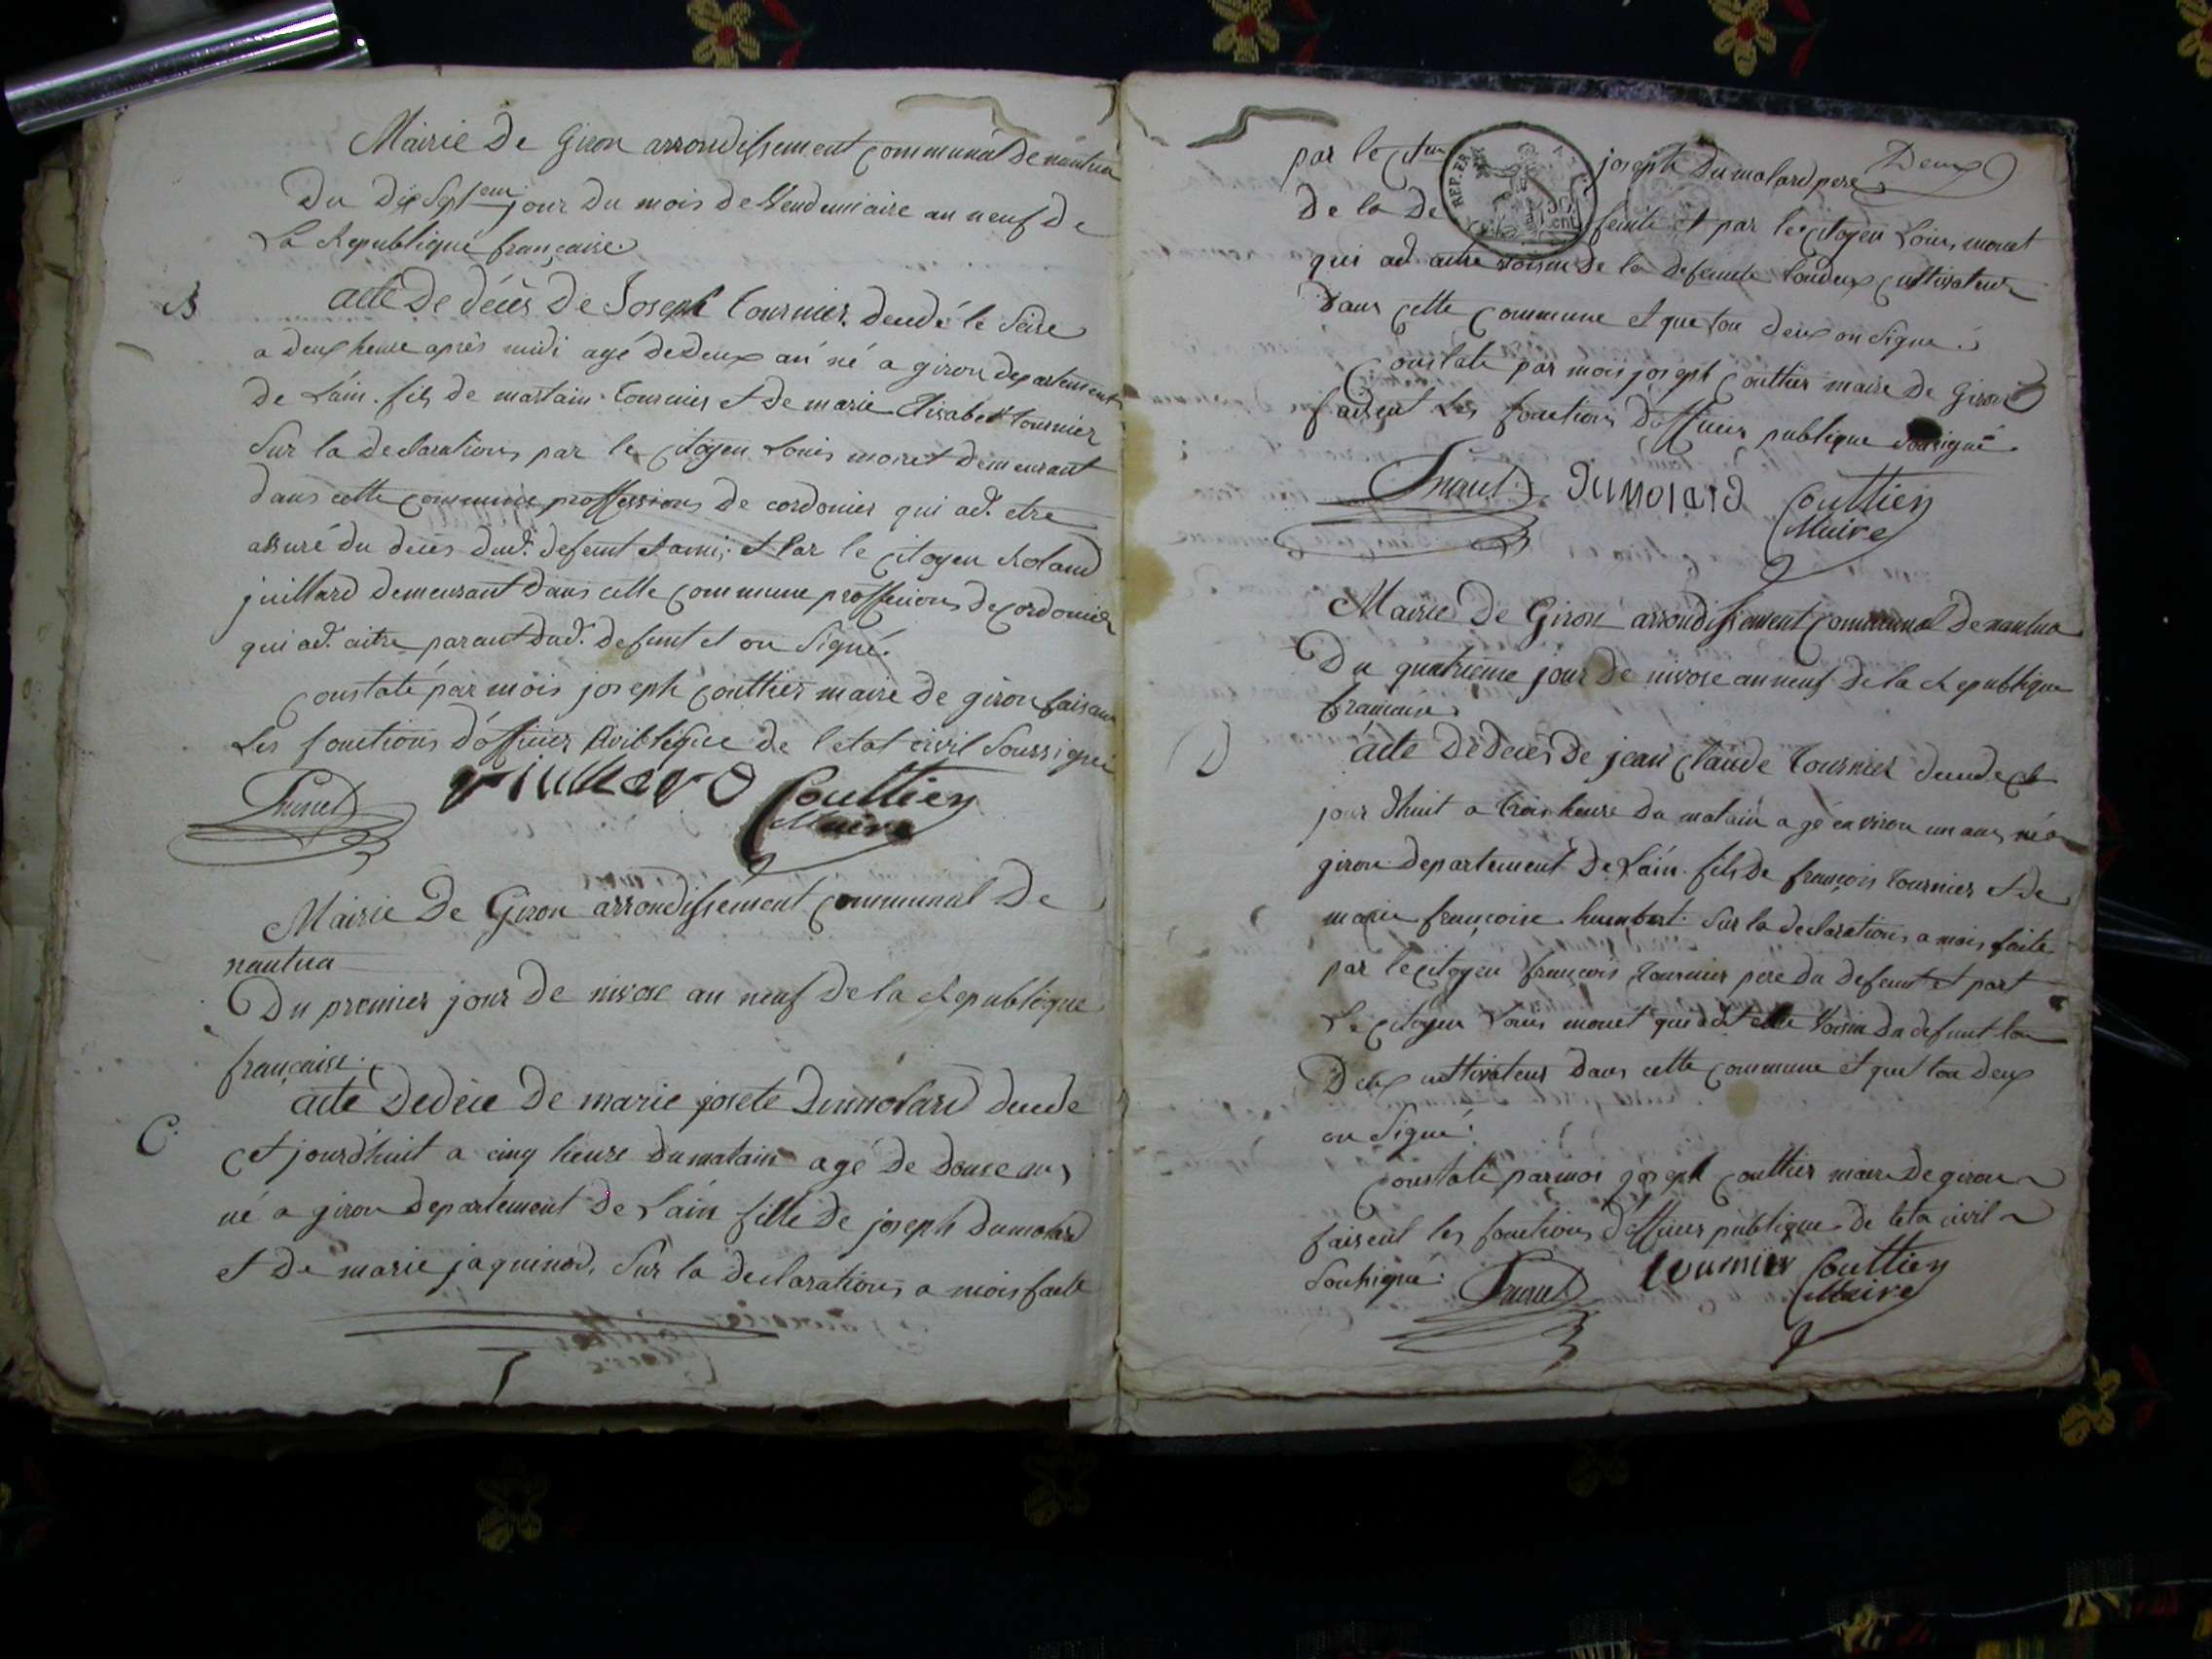 Mairie De Giron arrondissement communal De nantua
Du Dix Septeme jour Du mois de Vendemiaire an neuf De
La Republique française.
B
acte De décès De Joseph Tournier décédé le Seise
a deux heure après midi agé de Deux an né a giron departement
de L'ain fils de martain Tournier et De marie Elisabet tournier
Sur la declarations par le citoyen Louis monet demeurant
Dans cette commune proffessions De cordonier qui ad. etre
assuré du décès dud. defeunt et ami; et Par le citoyen Roland
juillard demeurant Dans cette commune proffecions de cordonier
qui ad. aitre parant Dud. defunt et on Signé.
Constaté par mois joseph Couttier maire de giron faisant
Les fonctions d'officier de l'etat civil Soussigné
Monet juillard Couttier
Maire
Mairie De Giron arrondissement communal De
nantua
Du premier jour De nivose an neuf De la Republique
française.
acte De décé De marie josete Dumolard décéde
C.
Cet jourd'huit a cinq heure Du matain agé De Douse ans
né a giron departement De L'ain fille De joseph Dumolard
et De marie jaquinod, Sur la declarations a mois faite
par le citen joseph Dumolard pere
Deux
REP. FRA
De la De feunte et par le citoyen Louis monet
qui ad. aitre voisin De la defeunte toudeux cultivateur
Dans cette commune et que tou deux on Signé.
Constaté par mois joseph Couttier maire De Giron
faiseut Les fonctions D'officier publique Sousigné.
Monet Dumolard Couttier
Maire
Mairie De Giron arrondissement communal De nantua
Du quatrieme jour De nivose an neuf De la Republique
française.
D
acte De décès De jean Claude Tournier décédé ce
jour d'huit a trois heure Du matain agé environ un ans né a
giron departement De L'ain fils De françois Tournier et De
marie françoise humbert. Sur la declarations a mois faite
par le citoyen françois Tournier pere Du defeunt et part
Le citoyen Louis monet qui adt etre Voisin Du defunt tou
Deux cultivateur Dans cette commune et que tou Deux
on Signé.
Constaté par moi joseph Couttier maire De giron
faiseut les fonctions d'officier publique De leta civil
Souhigné. Monet tournier Couttier
Maire